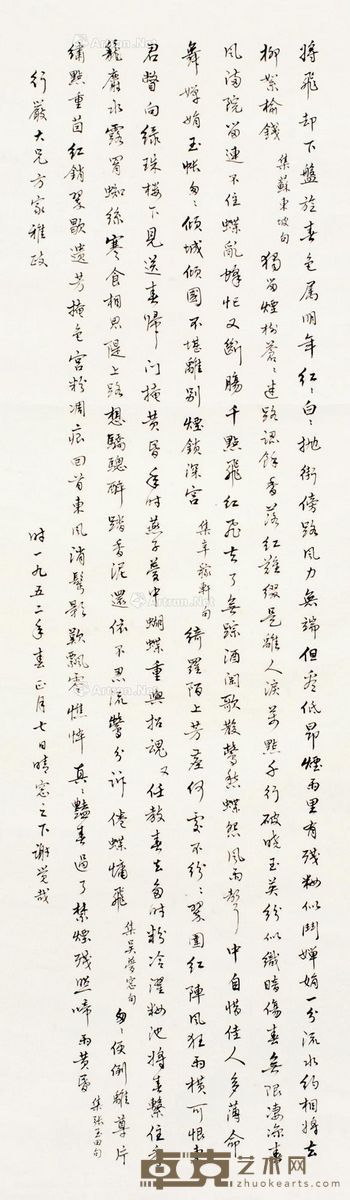 将飞却下盘旋春色属明年红红白白抛街傍路风力无端但尽低昂烟雨里有残妆似斗婵娟一分流水约相将去
柳絮榆钱 集苏东坡句 独留烟树苍苍迷路认余香落红难缀是离人泪万点千行破晓玉英纷似织暗伤春无限凄凉
风满院留连不住蝶乱蜂忙又断肠千点飞红飞去了无踪酒阑歌散莺愁蝶怨风雨声中自惜佳人多薄命
舞婵娟玉帐匆匆倾城倾国不堪离别烟锁深宫 集辛稼轩句 绮罗陌上芳尘何处不纷纷翠围红阵风狂雨横可恨
君瞥向绿珠楼下见送春归门掩黄昏年时燕子梦中蝴蝶重与招魂又任教春去多时粉冷濯妆池将春系住
笼麝水露罥蛛丝寒食相思堤上路想骄骢醉踏香泥还依不忍流莺分诉倦蝶慵飞 集吴梦窗句 匆匆便倒离尊片
绣点重茵红销翠歇遗芳掩色宫粉凋痕回首东风消鬓影叹飘零憔悴真真艳春过了禁烟残照啼雨黄昏 集张玉田句
行严大兄方家雅政
时一九五二年春正月七日晴窗之下谢觉哉
卓克艺术网